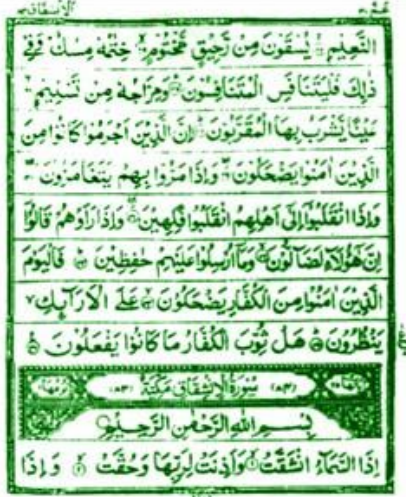 الانشقاق ٨٤
عمّ ٣٠
النَّعِيْمِ ۝ يُسْقَوْنَ مِنْ رَّحِيْقٍ مَّخْتُوْمٍ ۝ خِتٰمُهٗ مِسْكٌ ؕ وَفِيْ
ذٰلِكَ فَلْيَتَنَافَسِ الْمُتَنَافِسُوْنَ ۝ وَمِزَاجُهٗ مِنْ تَسْنِيْمٍ ۝
عَيْنًا يَّشْرَبُ بِهَا الْمُقَرَّبُوْنَ ۝ اِنَّ الَّذِيْنَ اَجْرَمُوْا كَانُوْا مِنَ
الَّذِيْنَ اٰمَنُوْا يَضْحَكُوْنَ ۝ وَاِذَا مَرُّوْا بِهِمْ يَتَغَامَزُوْنَ ۝
وَاِذَا انْقَلَبُوْۤا اِلٰۤى اَهْلِهِمُ انْقَلَبُوْا فَكِهِيْنَ ۝ وَاِذَا رَاَوْهُمْ قَالُوْۤا
اِنَّ هٰۤؤُلَآءِ لَضَآلُّوْنَ ۝ وَمَاۤ اُرْسِلُوْا عَلَيْهِمْ حٰفِظِيْنَ ۝ فَالْيَوْمَ
الَّذِيْنَ اٰمَنُوْا مِنَ الْكُفَّارِ يَضْحَكُوْنَ ۝ عَلَى الْاَرَآئِكِ ۙ
يَنْظُرُوْنَ ۝ هَلْ ثُوِّبَ الْكُفَّارُ مَا كَانُوْا يَفْعَلُوْنَ ۝
(٨٤) سُوْرَةُ الْاِنْشِقَاقِ مَكِّيَّةٌ (٨٣)
بِسْمِ اللهِ الرَّحْمٰنِ الرَّحِيْمِ
اِذَا السَّمَآءُ انْشَقَّتْ ۝ وَاَذِنَتْ لِرَبِّهَا وَحُقَّتْ ۝ وَاِذَا